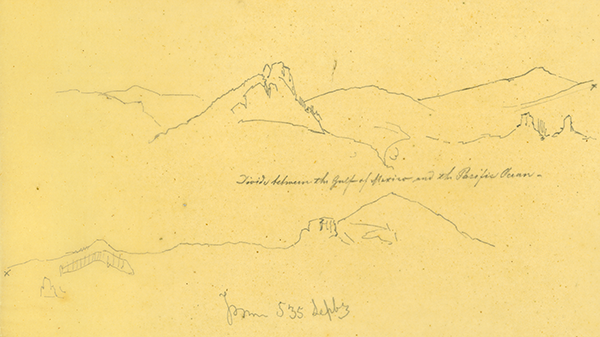 Divide between the Gulf of Mexico and the Pacific Ocean -
From 535